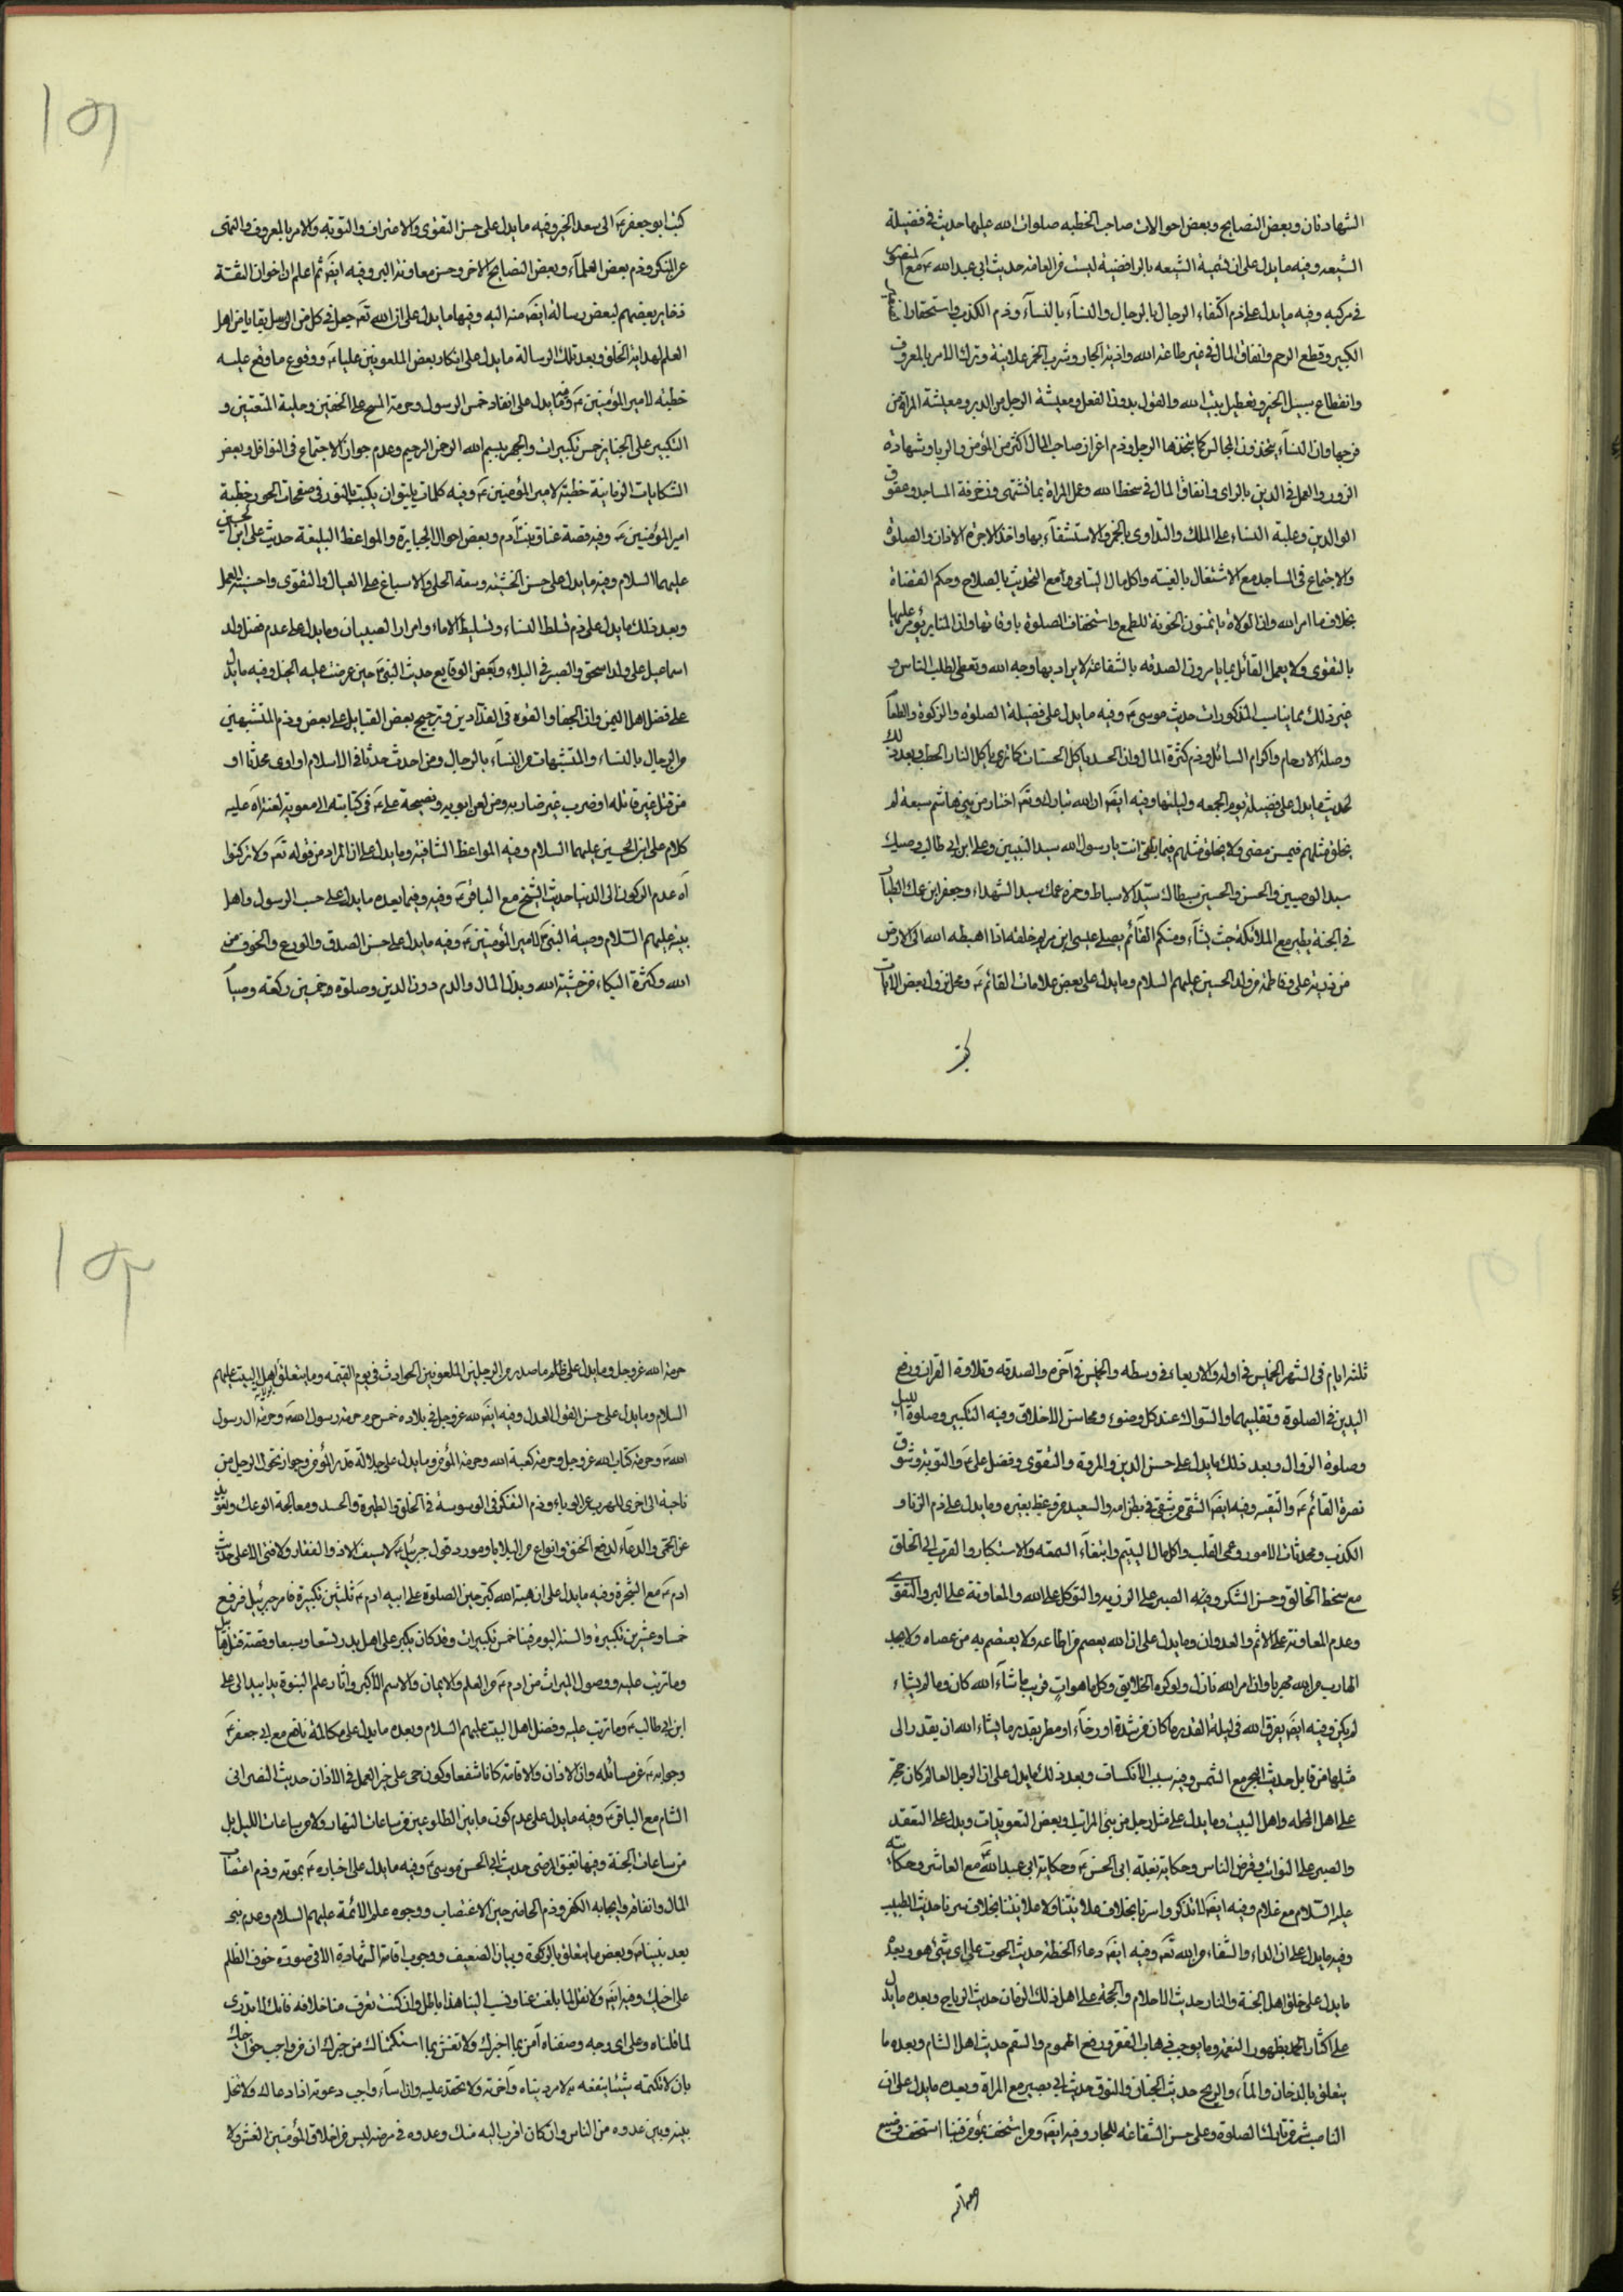 الشهادتان وبعض النصايح وبعض احوالات صاحب الخطبه صلوات الله عليها حديث في فضيلة
الشيعه وفيه ما يدل على ان تسمية الشيعه بالرافضية ليست من العامه حديث ابي عبد الله ع مع المنصور
في مركبه وفيه ما يدل على ذم اكتفاء الرجال بالرجال والنسآء بالنسآء وذم الكذب واستحقار
الكبير وقطع الرحم وانفاق المال في غير طاعة الله واذية الجار وشرب الخمر علانية وترك الامر بالمعروف
وانقطاع سبيل الخير وتعطيل بيت الله والقول بدون الفعل ومعيشة الرجل من الدبر ومعيشة المراة من
فرجها وان النسآء يتخذون المجالس كما يتخذها الرجل وذم اعزاز صاحب المال اكثر من المؤمن والربا وشهادة
الزور والعمل في الدين بالراى وانفاق المال في سخط الله وعمل المراة بما تشتهى وزخرفة المساجد وعقوق
الوالدين وغلبة النساء على الملك والتداوى بالخمر والاستشفآء بها واخذ الاجرة الاذان والصلوة
والاجتماع في المساجد مع الاشتغال بالغيبة واكل مال اليتامى وما مع التحدث بالصلاح وحكم القضاة
بخلاف ما امر الله وان الولاة ياتمنون الخونة للطمع واستخفاف الصلوة باوقاتها وان المنابر يؤمر عليها
بالتقوى ولا يعمل القائل بما يامر وان الصدقه بالشفاعة لا يراد بها وجه الله وتعطى لطلب الناس و
غير ذلك مما يناسب المذكورات حديث موسى ع وفيه ما يدل على فضيلة الصلوة والزكوة والطعآ
وصلة الارحام واكرام السائل وذم كثرة المال وان الحسد ياكل الحسنات كما ياكل النار الحطب وبعد ذلك
حديث ما يدل على فضيلة يوم الجمعه وليلتها وفيه ايضا ان الله تبارك وتع اختار من بني هاشم سبعة لم
يخلق مثلهم فيمن مضى ولا يخلق مثلهم فيما بقى انت يا رسول الله سيد النبيين وعلى ابن ابى طالب وصيك
سيد الوصيين والحسن والحسين سبطاك سيدا الاسباط وحمزه عمك سيد الشهداء وجعفر ابن عمك الطيآ
في الجنة يطير مع الملائكة حيث يشآء ومنكم القآئم يصلى عيسى ابن مريم خلفه اذا اهبطه الله الى الارض
من ذرية على وفاطمة من ولد الحسين عليهم السلام وما يدل على بعض علامات القائم ع ومحل نزول بعض الايات
كتب ابو جعفر ع الى سعد الخير وفيه ما يدل على حسن التقوى والاعتراف والتوبة والامر بالمعروف والنهى
عن المنكر وذم بعض العلمآء وبعض النصايح الاخر وحسن معاونة البر وفيه ايضا ثم اعلم ان اخوان الثقة
ذخاير بعضهم لبعض رسالة ايضا منه اليه وفيها ما يدل على ان الله تع جعل في كل من الرسل بقايا من اهل
العلم لهداية الخلق وبعد تلك الرسالة ما يدل على انكار بعض الملعونين عليا ع ووقوع ما وقع عليه
خطبة لامير المؤمنين ع وفيه ما يدل على انفاد خمس الرسول وحرمة المسح على الخفين وحلية المتعتين و
التكبير على الجنايز خمس تكبيرات والجهر ببسم الله الرحمن الرحيم وعدم جواز الاجتماع في النوافل وبعض
الشكايات الزمانية خطبة لامير المؤمنين ع وفيه كلمات يليق ان يكتب بالنور في صفحات الحور خطبة
امير المؤمنين ع وفيه قصة عناق بنت ادم وبعض احوال الجبابرة والمواعظ البليغة حديث على ابن الحسين
عليهما السلام وفيه ما يدل على حسن الخشية وسعة الخلق والاسباغ على العيال والتقوى واحسنية العمل
وبعد ذلك ما يدل على ذم تسلط النساء وتسليط الاماء وامراء الصبيان وما يدل على عدم فضل ولد
اسماعيل على ولد اسحق والصبر في البلاء وبعض الوقايع حديث النبى ص حين عرضت عليه الخيل وفيه ما يدل
على فضل اهل اليمن وان الجفا والقوه في الفدادين وترجيح بعض القبايل على بعض وذم المتشبهين
من الرجال بالنساء والمتشبهات من النسآء بالرجال ومن احدث حدثا في الاسلام او اوى محدثا او
من قتل غير قاتله او ضرب غير ضاربه ومن لعن ابويه ونصيحة على ع في كتابته الى معوية لعنة اه عليه
كلام على ابن الحسين عليهما السلام وفيه المواعظ الشافية وما يدل على ان المراد من قوله تع ولا تركنوا
اه عدم الركون الى الدنيا حديث الشيخ مع الباقر ع وفيه وفيما بعده ما يدل على حب الرسول واهل
بيته عليهم السلام وصية النبى ص لامير المؤمنين ع وفيه ما يدل على حسن الصدق والورع والخوف من
الله وكثرة البكاء من خشية الله وبذل المال والدم دون الدين وصلوة وخمسين ركعة وصيآ
ثلثه ايام في الشهر الخميس في اوله والاربعاء في وسطه والخميس في اخره والصدقه وتلاوة القران ورفع
اليدين في الصلوة وتقليبهما والسواك عند كل وضوء ومحاسن الاخلاق وفيه التكبير وصلوة الليل
وصلوة الزوال وبعد ذلك ما يدل على حسن الدين والمروة والتقوى وفضل على ع والتوبة وشوق
نصرة القائم ع والتقيه وفيه ايضا الشقى من شقى في بطن امه والسعيد من وعظ بغيره وما يدل على ذم الزنا و
الكذب ومحدثات الامور وعمى القلب واكل مال اليتيم وابتغآء السمعه والاستكبار والقرب الى الخلق
مع سخط الخالق وحسن الشكر وفيه الصبر على الرزيه والتوكل على الله والمعاونة على البر والتقوى
وعدم المعاونة على الاثم والعدوان وما يدل على ان الله يعصم من اطاعه ولا يعتصم به من عصاه ولا يجد
الهارب من الله مهربا وان امر الله نازل ولو كره الخلايق وكل ما هو ات قريب ما شآء الله كان وما لم يشاء
لم يكن وفيه ايضا يفرق الله في ليلة القدر ما كان من شدة او رخآء او مطر بقدر ما يشاء الله ان يقدر الى
مثلها من قابل حديث البحر مع الشمس وفيه سبب الانكساف وبعد ذلك ما يدل على ان الرجل العالم كان حجة
على اهل المحله واهل البيت وما يدل على مثل رجل من بنى اسرائيل وبعض التعويذات ويدل على التفقد
والصبر على النوائب وقرض الناس وحكاية نعلة ابى الحسن ع وحكاية ابى عبد الله ع مع العاشر وحكاية
عليه السلام مع غلام وفيه ايضا لا تذكروا سرنا بخلاف علانيتنا ولا علانيتنا بخلاف سرنا حديث الطبيب
وفيه ما يدل على ان الداء والشفاء من الله تع وفيه ايضا دعاء الحفظة حديث الحوت على اى شئ هو وبعده
ما يدل على خلق اهل الجنة والنار حديث الاحلام والحجة على اهل ذلك الزمان حديث الرياح وبعده ما يدل
على اكثار الحمد بظهور النعمة وما يوجب ذهاب الفقر ورفع الهموم والسقم حديث اهل الشام وبعده ما
يتعلق بالدخان والمآء والريح حديث الجنان والنوق حديث ابى بصير مع المراة وبعده ما يدل على ان
الناصب شر من تارك الصلوة وعلى حسن الشفاعة للجار وفيه ايضا ومن استخف بمؤمن فبنا استخف ومن ضيع
حرمة الله عز وجل وما يدل على ظلم ما صدر من الرجلين الملعونين الحوادث في يوم القيمة وما يتعلق باهل البيت عليهم
السلام وما يدل على حسن القول العدل وفيه ايضا لله عز وجل في بلاده خمس حرم حرمة رسول الله ص وحرمة ال رسول
الله ص وحرمة كتاب الله عز وجل وحرمة كعبة الله وحرمة المؤمن وما يدل على جلالة قدر المؤمن وجواز تحول الرجل من
ناحية الى اخرى للهرب عن الوباء وذم التفكر في الوسوسة في الخلق والطيرة والحسد ومعالجة الوعك وتعويذ
عن الحمى والدعآء لدفع الخنق وانواع من البلايا ومورد قول جبرئيل ع لا سيف الا ذو الفقار ولا فتى الا على حديث
ادم ع مع الشجرة وفيه ما يدل على ان هبة الله كبر حين الصلوة على ابيه ادم ع ثلثين تكبيرة فامر جبرئيل فرفع
خمسا وعشرين تكبيرة والسنة اليوم فينا خمس تكبيرات وقد كان يكبر على اهل بدر تسعا وسبعا وقصة قتل هابيل
وما ترتب عليه ووصول الميراث من ادم ع من العلم والايمان والاسم الاكبر واثار علم النبوة يدا بيد الى على
ابن ابى طالب ع وما ترتب عليه وفضل اهل البيت عليهم السلام وبعده ما يدل على مكالمة نافع مع ابى جعفر ع
وجوابه ع عن مسائله وان الاذان والاقامة كانا شفعا وكون حى على خير العمل في الاذان حديث النصرانى
الشام مع الباقر ع وفيه ما يدل على عدم كون ما بين الطلوعين من ساعات النهار ولا من ساعات الليل بل
من ساعات الجنة وفيها تفيق المرضى حديث ابى الحسن موسى ع وفيه ما يدل على اخباره ع بموته وذم اغتصاب
المال وانفاقه وايجابه الكفر وذم الحاضر حين الاغتصاب ووجوه علم الائمة عليهم السلام وعدم نبى
بعد نبينا ص وبعض ما يتعلق بالزكوة وبيان الضعيف ووجوب اقامة الشهادة الا في صورة خوف الظلم
على اخيك وفيه ايضا ولا تقل لما بلغك عنا ونسب الينا هذا باطل وان كنت تعرف منا خلافه فانك لا تدرى
لما قلناه وعلى اى وجه وصفناه آمن بما اخبرك ولا تفش بما استكتمناك من خبرك ان من واجب حق اخيك
بان لا تكتمه شيئا ينفعه به لامر دنياه واخرته ولا تحقد عليه وان اسآء واجب دعوته اذا دعاك ولا تخل
بينه وبين عدوه من الناس وان كان اقرب اليه منك وعده في مرضه ليس من اخلاق المؤمنين الغش ولا